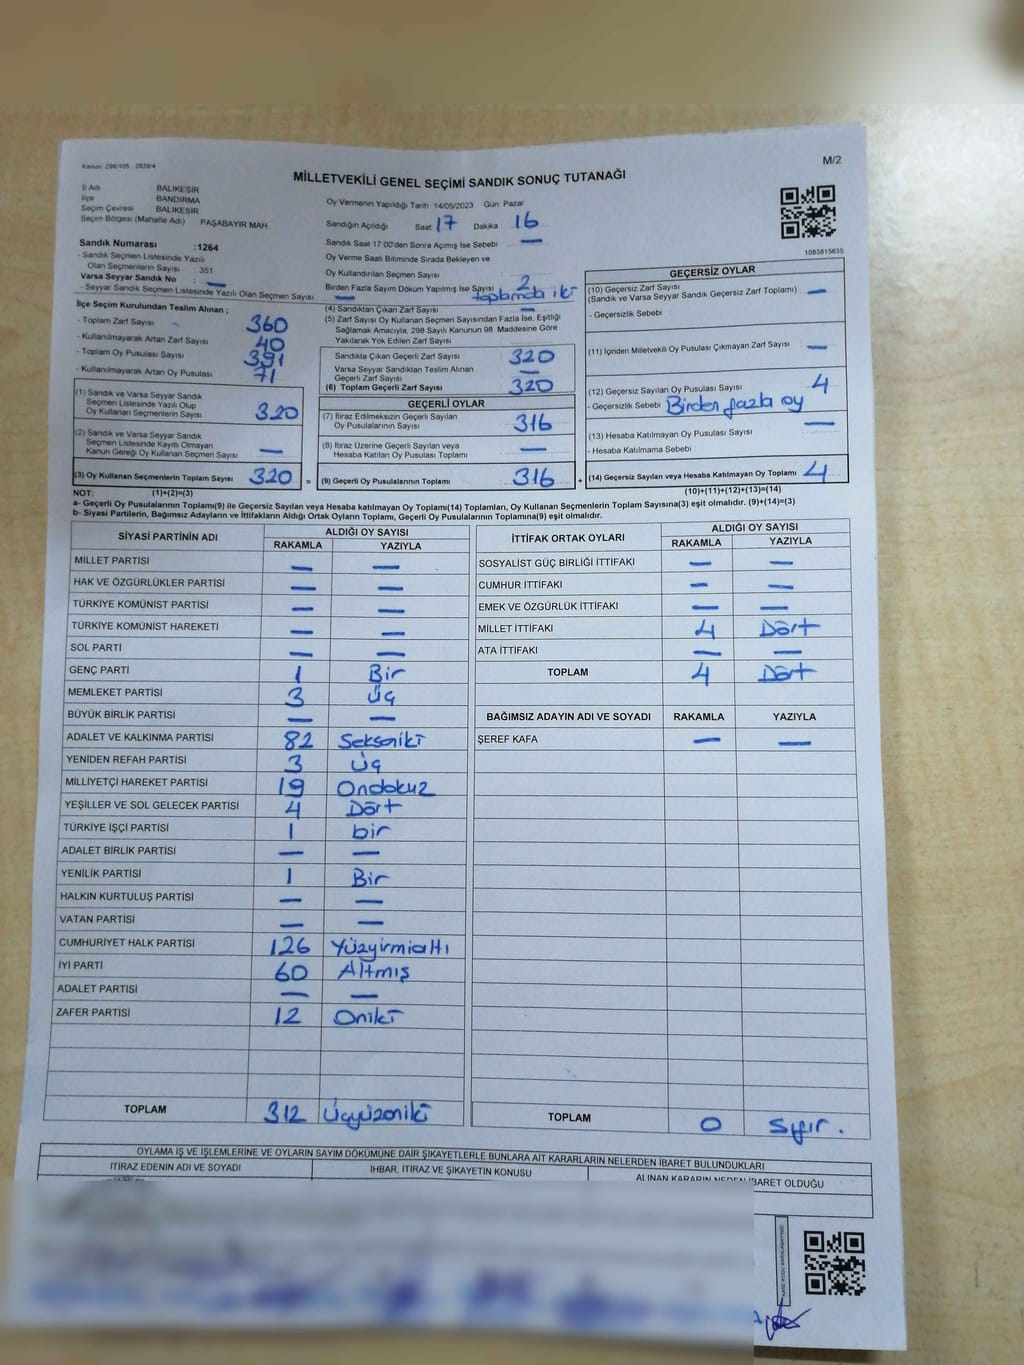 Kanun: 298/105 , 2839/4
M/2
MİLLETVEKİLİ GENEL SEÇİMİ SANDIK SONUÇ TUTANAĞI
İl Adı BALIKESİR
İlçe BANDIRMA
Seçim Çevresi BALIKESİR
Seçim Bölgesi (Mahalle Adı) PAŞABAYIR MAH
Sandık Numarası :1264
- Sandık Seçmen Listesinde Yazılı
Olan Seçmenlerin Sayısı : 351
Varsa Seyyar Sandık No : —
- Seyyar Sandık Seçmen Listesinde Yazılı Olan Seçmen Sayısı —
Oy Vermenin Yapıldığı Tarih 14/05/2023 Gün: Pazar
Sandığın Açıldığı Saat 17 Dakika 16
Sandık Saat 17:00'den Sonra Açımış İse Sebebi —
Oy Verme Saati Bitiminde Sırada Bekleyen ve
Oy Kullandırılan Seçmen Sayısı —
Birden Fazla Sayım Döküm Yapılmış İse Sayısı 2
toplamda iki
1083815635
İlçe Seçim Kurulundan Teslim Alınan ;
- Toplam Zarf Sayısı 360
- Kullanılmayarak Artan Zarf Sayısı 40
- Toplam Oy Pusulası Sayısı 391
- Kullanılmayarak Artan Oy Pusulası 71
(1) Sandık ve Varsa Seyyar Sandık
Seçmen Listesinde Yazılı Olup
Oy Kullanan Seçmenlerin Sayısı 320
(2) Sandık ve Varsa Seyyar Sandık
Seçmen Listesinde Kayıtlı Olmayan
Kanun Gereği Oy Kullanan Seçmen Sayısı —
(3) Oy Kullanan Seçmenlerin Toplam Sayısı 320 =
(4) Sandıktan Çıkan Zarf Sayısı —
(5) Zarf Sayısı Oy Kullanan Seçmen Sayısından Fazla İse, Eşitliği
Sağlamak Amacıyla, 298 Sayılı Kanunun 98 Maddesine Göre
Yakılarak Yok Edilen Zarf Sayısı
Sandıkta Çıkan Geçerli Zarf Sayısı 320
Varsa Seyyar Sandıktan Teslim Alınan
Geçerli Zarf Sayısı —
(6) Toplam Geçerli Zarf Sayısı 320
GEÇERLİ OYLAR
(7) İtiraz Edilmeksizin Geçerli Sayılan
Oy Pusulalarının Sayısı 316
(8) İtiraz Üzerine Geçerli Sayılan veya
Hesaba Katılan Oy Pusulası Toplamı —
(9) Geçerli Oy Pusulalarının Toplamı 316 +
GEÇERSİZ OYLAR
(10) Geçersiz Zarf Sayısı
(Sandık ve Varsa Seyyar Sandık Geçersiz Zarf Toplamı) —
- Geçersizlik Sebebi :
(11) İçinden Milletvekili Oy Pusulası Çıkmayan Zarf Sayısı —
(12) Geçersiz Sayılan Oy Pusulası Sayısı 4
- Geçersizlik Sebebi Birden fazla oy
(13) Hesaba Katılmayan Oy Pusulası Sayısı —
- Hesaba Katılmama Sebebi :
(14) Geçersiz Sayılan veya Hesaba Katılmayan Oy Toplamı 4
NOT: (1)+(2)=(3) (10)+(11)+(12)+(13)=(14)
a- Geçerli Oy Pusulalarının Toplamı(9) ile Geçersiz Sayılan veya Hesaba katılmayan Oy Toplamı(14) Toplamları, Oy Kullanan Seçmenlerin Toplam Sayısına(3) eşit olmalıdır. (9)+(14)=(3)
b- Siyasi Partilerin, Bağımsız Adayların ve İttifakların Aldığı Ortak Oyların Toplamı, Geçerli Oy Pusulalarının Toplamına(9) eşit olmalıdır.
SİYASİ PARTİNİN ADI ALDIĞI OY SAYISI
RAKAMLA YAZIYLA
MİLLET PARTİSİ — —
HAK VE ÖZGÜRLÜKLER PARTİSİ — —
TÜRKİYE KOMÜNİST PARTİSİ — —
TÜRKİYE KOMÜNİST HAREKETİ — —
SOL PARTİ — —
GENÇ PARTİ 1 Bir
MEMLEKET PARTİSİ 3 Üç
BÜYÜK BİRLİK PARTİSİ — —
ADALET VE KALKINMA PARTİSİ 82 Sekseniki
YENİDEN REFAH PARTİSİ 3 Üç
MİLLİYETÇİ HAREKET PARTİSİ 19 Ondokuz
YEŞİLLER VE SOL GELECEK PARTİSİ 4 Dört
TÜRKİYE İŞÇİ PARTİSİ 1 bir
ADALET BİRLİK PARTİSİ — —
YENİLİK PARTİSİ 1 Bir
HALKIN KURTULUŞ PARTİSİ — —
VATAN PARTİSİ — —
CUMHURİYET HALK PARTİSİ 126 Yüzyirmialtı
İYİ PARTİ 60 Altmış
ADALET PARTİSİ — —
ZAFER PARTİSİ 12 Oniki
TOPLAM 312 Üçyüzoniki
İTTİFAK ORTAK OYLARI ALDIĞI OY SAYISI
RAKAMLA YAZIYLA
SOSYALİST GÜÇ BİRLİĞİ İTTİFAKI — —
CUMHUR İTTİFAKI — —
EMEK VE ÖZGÜRLÜK İTTİFAKI — —
MİLLET İTTİFAKI 4 Dört
ATA İTTİFAKI — —
TOPLAM 4 Dört
BAĞIMSIZ ADAYIN ADI VE SOYADI RAKAMLA YAZIYLA
ŞEREF KAFA — —
TOPLAM 0 Sıfır.
OYLAMA İŞ VE İŞLEMLERİNE VE OYLARIN SAYIM DÖKÜMÜNE DAİR ŞİKAYETLERLE BUNLARA AİT KARARLARIN NELERDEN İBARET BULUNDUKLARI
İTİRAZ EDENİN ADI VE SOYADI İHBAR, İTİRAZ VE ŞİKAYETİN KONUSU ALINAN KARARIN NEDEN İBARET OLDUĞU